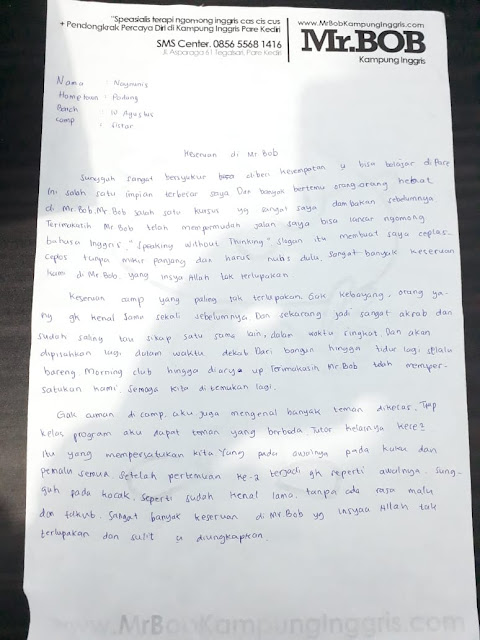 "Speasialis terapi ngomong inggris cas cis cus
+ Pendongkrak Percaya Diri di Kampung Inggris Pare Kediri
SMS Center. 0856 5568 1416
Jl. Asparaga 61 Tegalsari, Pare Kediri
www.MrBobKampungInggris.com
Mr.BOB
Kampung Inggris
Nama : Naymunis
Hometown : Padang
Batch : W Agustus
Camp : Sistar
Keseruan di Mr Bob
Sungguh sangat bersyukur bisa diberi kesempatan y bisa belajar di Pare
Ini salah satu impian terbesar saya Dan banyak bertemu orang-orang hebat
di Mr.Bob. Mr Bob salah satu kursus yg sangat saya dambakan sebelumnya
Terimakasih Mr Bob telah mempermudah jalan saya bisa lancar ngomong
bahasa Inggris, "Speaking Without Thinking", Slogan itu membuat saya ceplas-
ceplos tanpa mikir panjang dan harus nulis dulu. Sangat banyak keseruan
kami di Mr Bob yang insya Allah tak terlupakan.
Keseruan camp yang paling tak terlupakan. Gak kebayang, orang ya-
ng gk kenal sama sekali sebelumnya Dan sekarang jadi sangat akrab dan
sudah saling tau sikap satu sama lain, dalam waktu singkat. Dan akan
dipisahkan lagi dalam waktu dekat Dari bangun hingga tidur lagi selalu
bareng. Morning club hingga diary up Terimakasih Mr.Bob telah memper-
satukan kami. Semoga kita ditemukan lagi.
Gak di camp, aku juga mengenal banyak teman dikelas. Tiap
kelas program aku dapat teman yang berbeda. Tutor kelasnya kece2
itu yang mempersatukan kita Yang pada awalnya pada kaku dan
pemalu semua. Setelah pertemuan ke-2 terjadi gk seperti awalnya. Sung-
guh pada kocak. Seperti sudah kenal lama, tanpa ada rasa malu
dan takut. Sangat banyak keseruan di Mr.Bob yg insyaa Allah tak
terlupakan dan sulit u diungkapkan.
www.MrBobKampungInggris.com